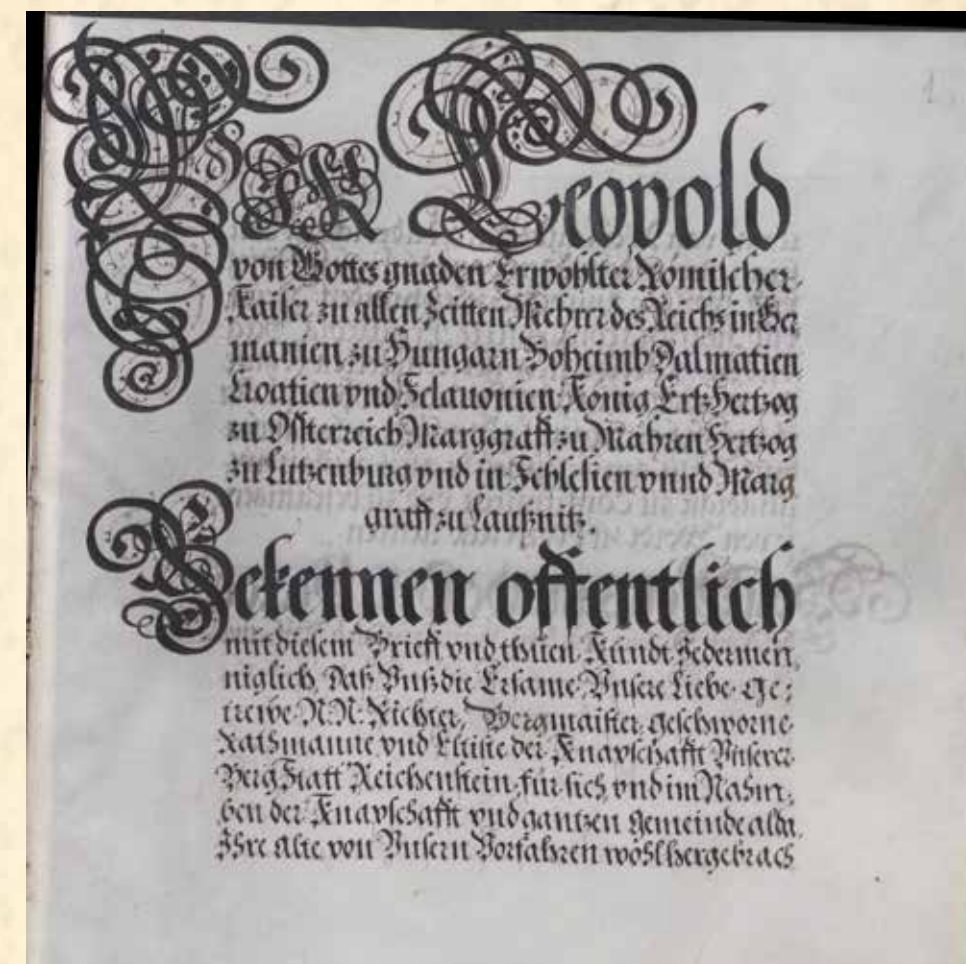 1
WIR Leopold
von Gottes gnaden Erwöhlter Römischer
Kaiser zu allen Zeitten Mehrer des Reichs in Ger
manien zu Hungarn Boheimb Dalmatien
Croatien vnd Sclauonien König Ertz Hertzog
zu Össterreich Marggraff zu Mähren Hertzog
zu Lutzenburg vnd in Schlesien vnnd Marg
graff zu Laußnitz.
Bekennen offentlich
mit diesem Brieff vnd thuen Kundt Jedermen
niglich, Daß Vnß die Ersame Vnsere Liebe Ge:
trewe N: N: Richter, Bergmaister, geschworne
Rathmanne vnd der Knapschafft Vnserer
Berg Statt Reichenstein, für sich, vnd im Nahm,
ben der Knapschafft vnd gantzen Gemeinde alda,
Ihre Alte von Vnsern Vorfahren wohl hergebrach